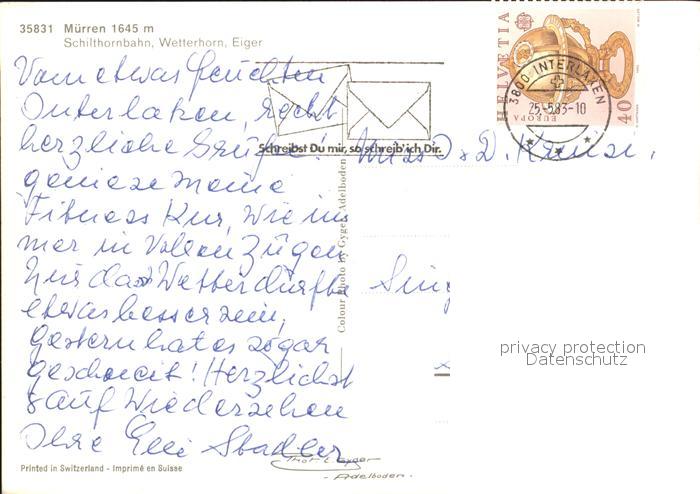 35831 Mürren 1645 m
Schilthornbahn, Wetterhorn, Eiger
Vom etwas feuchten
Interlaken, recht
herzliche Grüße!
geniese meine
Fitness Kur, wie im
mer in Vollen Zügen
Nur das Wetter dürfte
etwas besser sein,
gestern hat es sogar
geschneit! Herzlichst
& auf Wiedersehen
Ihre Elli Stadler
Printed in Switzerland - Imprimé en Suisse
Schreibst Du mir, so schreib' ich Dir.
Colour Photo by Gyger Adelboden
Gyger
- Adelboden -
HELVETIA
EUROPA
40
3800 INTERLAKEN
25-5.83-10
D.
privacy protection
Datenschutz